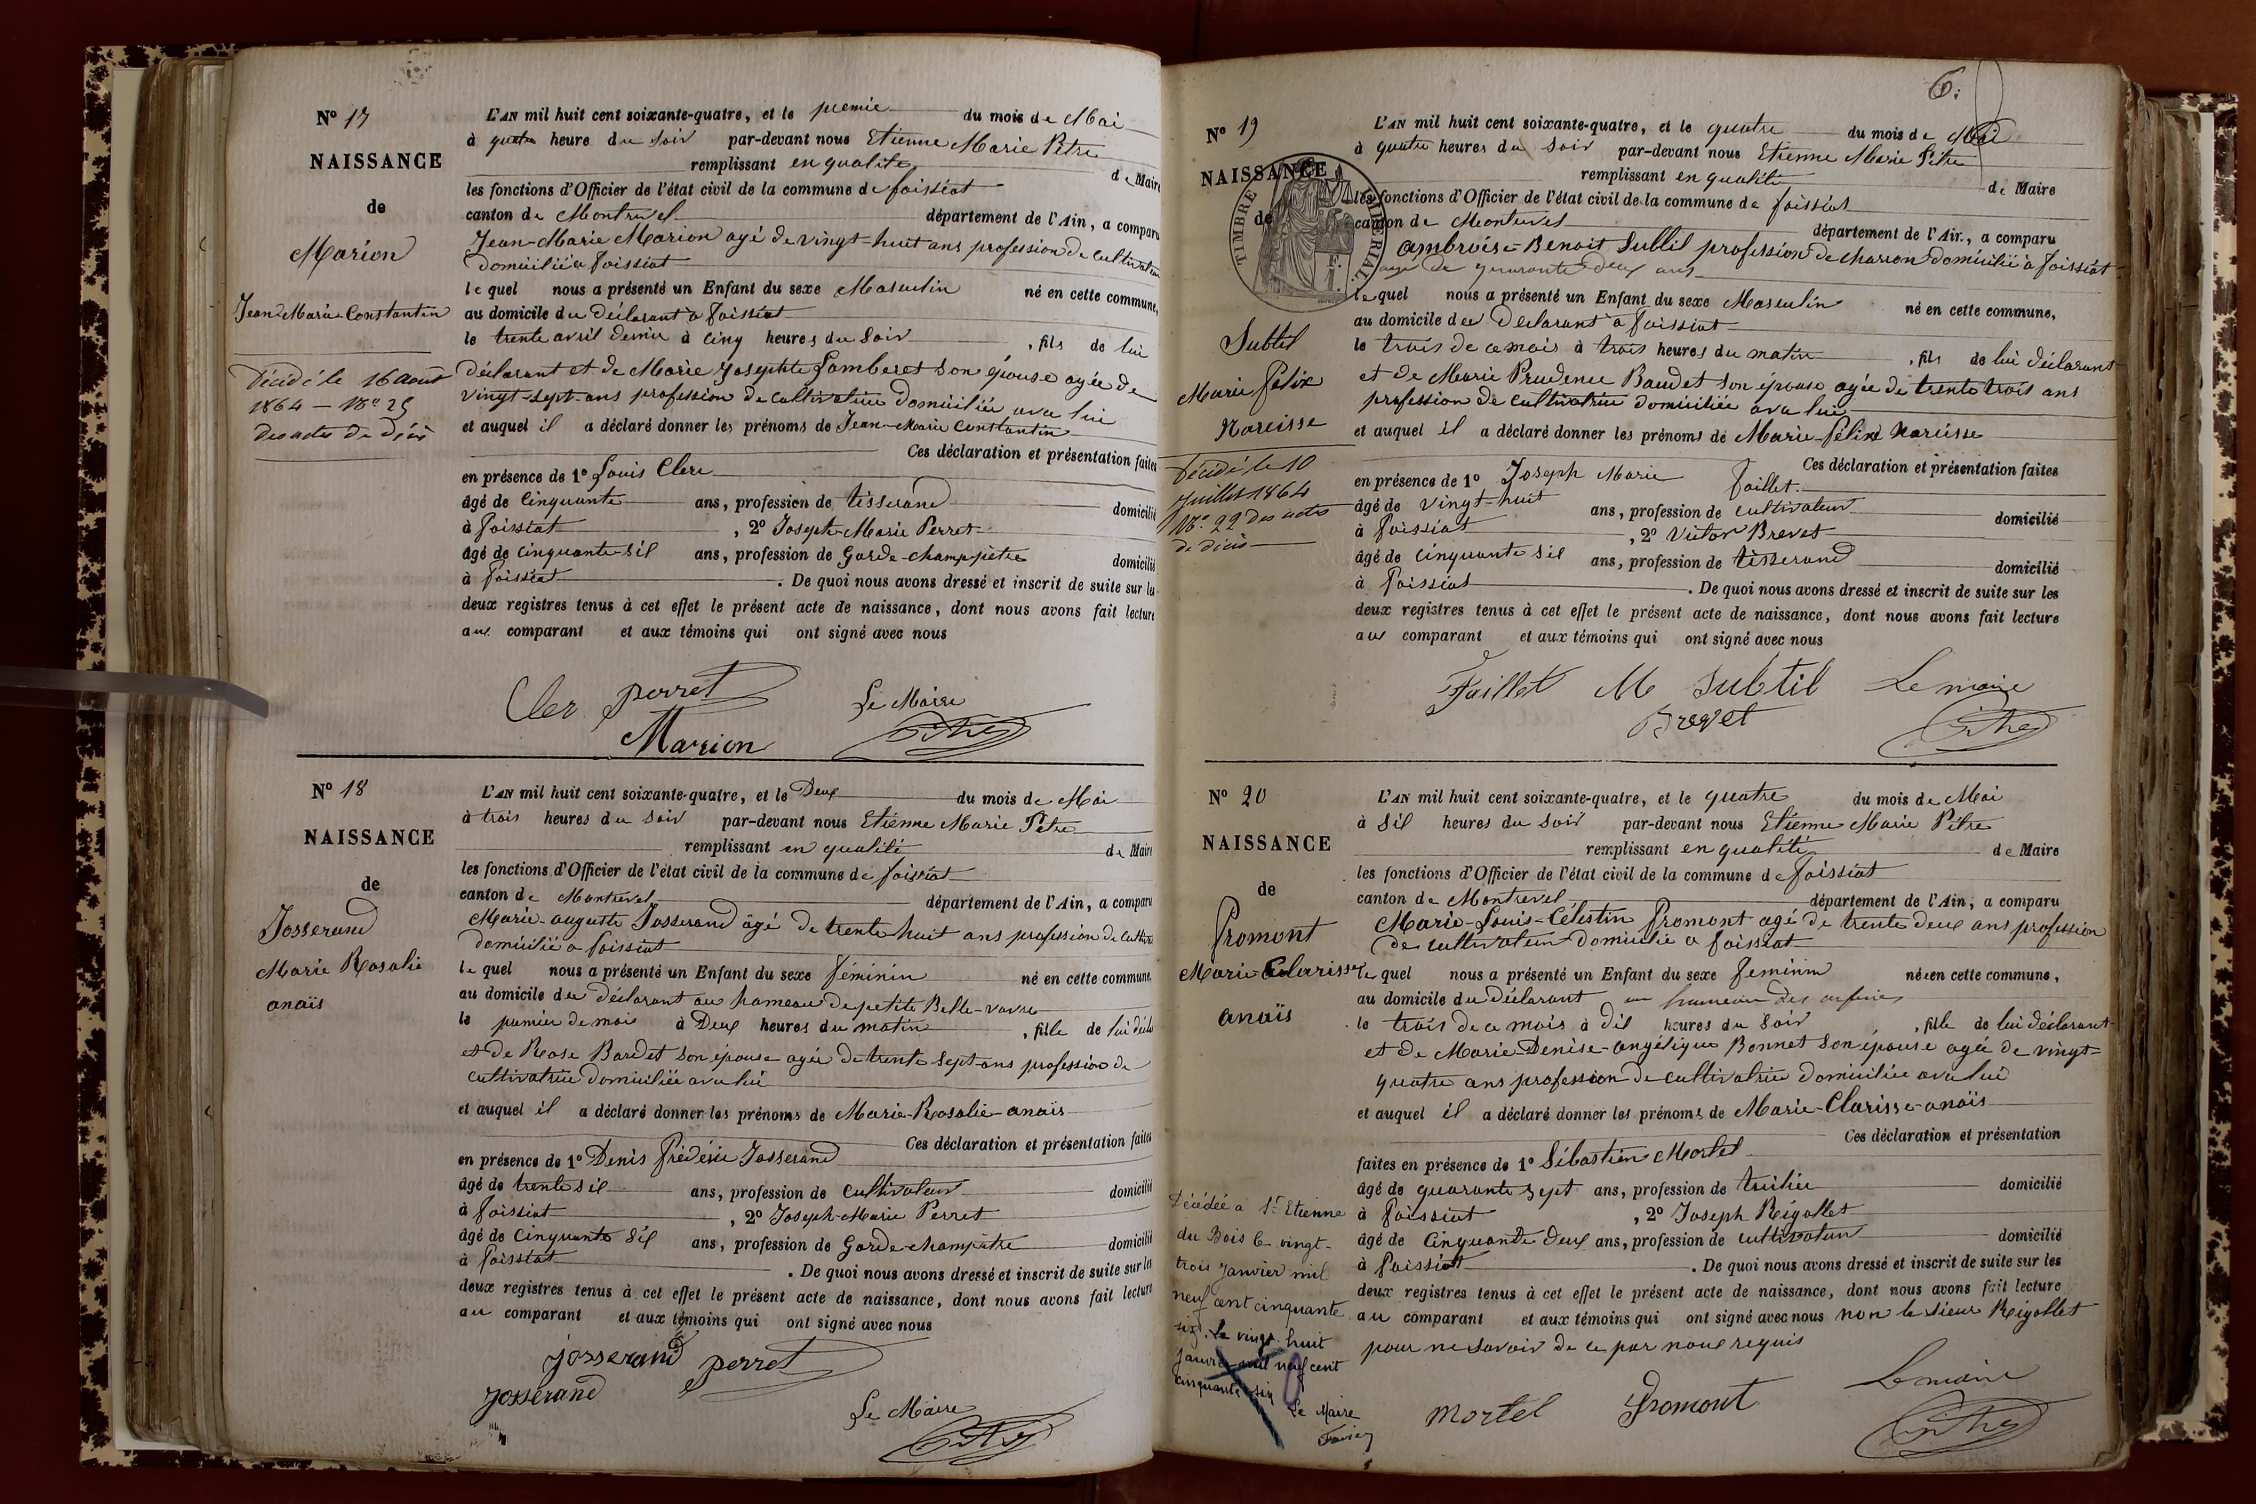 N° 17
NAISSANCE
de
Marion
Jean-Marie-Constantin
Décédé le 16 août
1864 — N° 25
des actes de décès
L'AN mil huit cent soixante-quatre, et le premie du mois de Mai
à quatre heure du soir par-devant nous Etienne Marie Pitre
remplissant en qualité de Maire
les fonctions d'Officier de l'état civil de la commune de foissiat
canton de Montrevel département de l'Ain, a comparu
Jean-Marie Marion agé de vingt-huit ans profession de cultivateur
domicilié à foissiat
lequel nous a présenté un Enfant du sexe Masculin né en cette commune,
au domicile du déclarant à foissiat
le trente avril dernier à cinq heures du soir, fils de lui
déclarant et de Marie Josephte Lamberet son épouse agée de
vingt-sept-ans profession de cultivatrice domiciliée avec lui
et auquel il a déclaré donner les prénoms de Jean-Marie Constantin
Ces déclaration et présentation faites
en présence de 1° Louis Clerc
âgé de cinquante ans, profession de tisserand domicilié
à foissiat, 2° Joseph-Marie Perret
âgé de cinquante-sil ans, profession de Garde-champêtre domicilié
à foissiat. De quoi nous avons dressé et inscrit de suite sur les
deux registres tenus à cet effet le présent acte de naissance, dont nous avons fait lecture
au comparant et aux témoins qui ont signé avec nous
Cler perret Le Maire
Marion Pitre
N° 18
NAISSANCE
de
Josserand
Marie Rosalie
anaïs
L'AN mil huit cent soixante-quatre, et le Deux du mois de Mai
à trois heures du soir par-devant nous Etienne Marie Pitre
remplissant en qualité de Maire
les fonctions d'Officier de l'état civil de la commune de foissiat
canton de Montrevel département de l'Ain, a comparu
Marie-auguste Josserand âgé de trente huit ans profession de cultiv
domicilié à foissiat
lequel nous a présenté un Enfant du sexe féminin né en cette commune,
au domicile du déclarant au hameau de petite Belle-vavre
le premier de mai à Deux heures du matin, fille de lui décla
et de Rose Bardet son épouse agée de trente sept-ans profession de
cultivatrice domiciliée avec lui
et auquel il a déclaré donner les prénoms de Marie-Rosalie-anaïs
Ces déclaration et présentation faites
en présence de 1° Denis frédéric Josserand
âgé de trente sil ans, profession de cultivateur domicilié
à foissiat, 2° Joseph-Marie Perret
âgé de cinquante sil ans, profession de Garde-champêtre domicilié
à foissiat. De quoi nous avons dressé et inscrit de suite sur les
deux registres tenus à cet effet le présent acte de naissance, dont nous avons fait lecture
au comparant et aux témoins qui ont signé avec nous
josserand perret
josserand
Le Maire
Pitre
6.
N° 19
NAISSANCE
de
TIMBRE IMPÉRIAL
Subtil
Marie felix
Narcisse
Décédé le 10
Juillet 1864
N° 22 des actes
de décès
L'AN mil huit cent soixante-quatre, et le quatre du mois de Mai
à quatre heures du soir par-devant nous Etienne Marie Pitre
remplissant en qualité de Maire
les fonctions d'Officier de l'état civil de la commune de foissiat
canton de Montrevel département de l'Ain, a comparu
ambroise-Benoit Subtil profession de charron domicilié à foissiat
agé de quarante-deux ans
lequel nous a présenté un Enfant du sexe Masculin né en cette commune,
au domicile du déclarant à foissiat
le trois de ce mois à trois heures du matin, fils de lui déclarant
et de Marie Prudence Baudet son épouse agée de trente trois ans
profession de cultivatrice domiciliée avec lui
et auquel il a déclaré donner les prénoms de Marie-félix Narcisse
Ces déclaration et présentation faites
en présence de 1° Joseph Marie faillet
âgé de vingt-huit ans, profession de cultivateur domicilié
à foissiat, 2° Victor Brevet
âgé de cinquante sil ans, profession de tisserand domicilié
à foissiat. De quoi nous avons dressé et inscrit de suite sur les
deux registres tenus à cet effet le présent acte de naissance, dont nous avons fait lecture
au comparant et aux témoins qui ont signé avec nous
faillet M Subtil Le maire
Brevet Pitre
N° 20
NAISSANCE
de
Promont
Marie Clarisse
anaïs
Décédée à St Etienne
du Bois le vingt-
trois janvier mil
neuf cent cinquante
six. Le vingt huit
janvier mil neuf cent
cinquante six
Le Maire
L'AN mil huit cent soixante-quatre, et le quatre du mois de Mai
à sil heures du soir par-devant nous Etienne Marie Pitre
remplissant en qualité de Maire
les fonctions d'Officier de l'état civil de la commune de foissiat
canton de Montrevel département de l'Ain, a comparu
Marie-Louis-Célestin Promont agé de trente deux ans profession
de cultivateur domicilié à foissiat
lequel nous a présenté un Enfant du sexe feminin née en cette commune,
au domicile du déclarant au hameau des
le trois de ce mois à dil heures du soir, fille de lui déclarant
et de Marie-Denise-angélique Bonnet son épouse agée de vingt-
quatre ans profession de cultivatrice domiciliée avec lui
et auquel il a déclaré donner les prénoms de Marie-Clarisse-anaïs
Ces déclaration et présentation
faites en présence de 1° Sébastien Mortel
âgé de quarante sept ans, profession de tuilier domicilié
à foissiat, 2° Joseph Rigollet
âgé de cinquante deux ans, profession de cultivateur domicilié
à foissiat. De quoi nous avons dressé et inscrit de suite sur les
deux registres tenus à cet effet le présent acte de naissance, dont nous avons fait lecture
au comparant et aux témoins qui ont signé avec nous non le sieur Rigollet
pour ne savoir de ce par nous requis
Le maire
mortel Promont Pitre